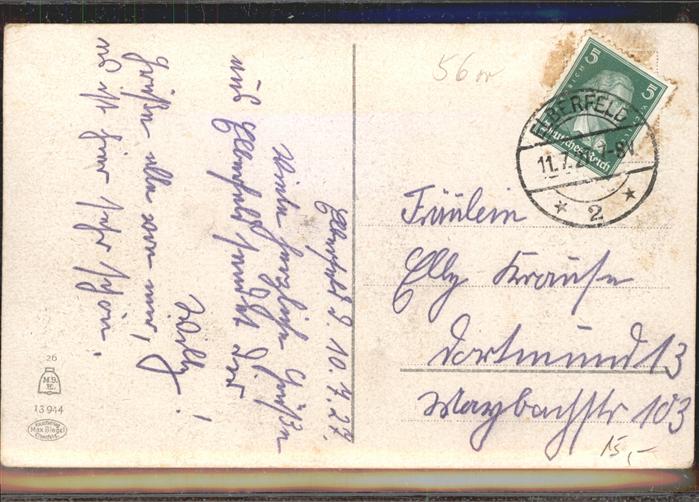 Elberfeld d. 10.7.27.
Viele herzliche Grüße
aus Elberfeld sendet Dir
Willy!
Grüße alle von mir,
es ist hier sehr schön.
56
5 5
Deutsches Reich
ELBERFELD
11.7. 7-8V.
* 2 *
Fräulein
Elly Krause
Dortmund 13
Maybachstr 103
15,-
26
M.B.
13944
Max Biegel